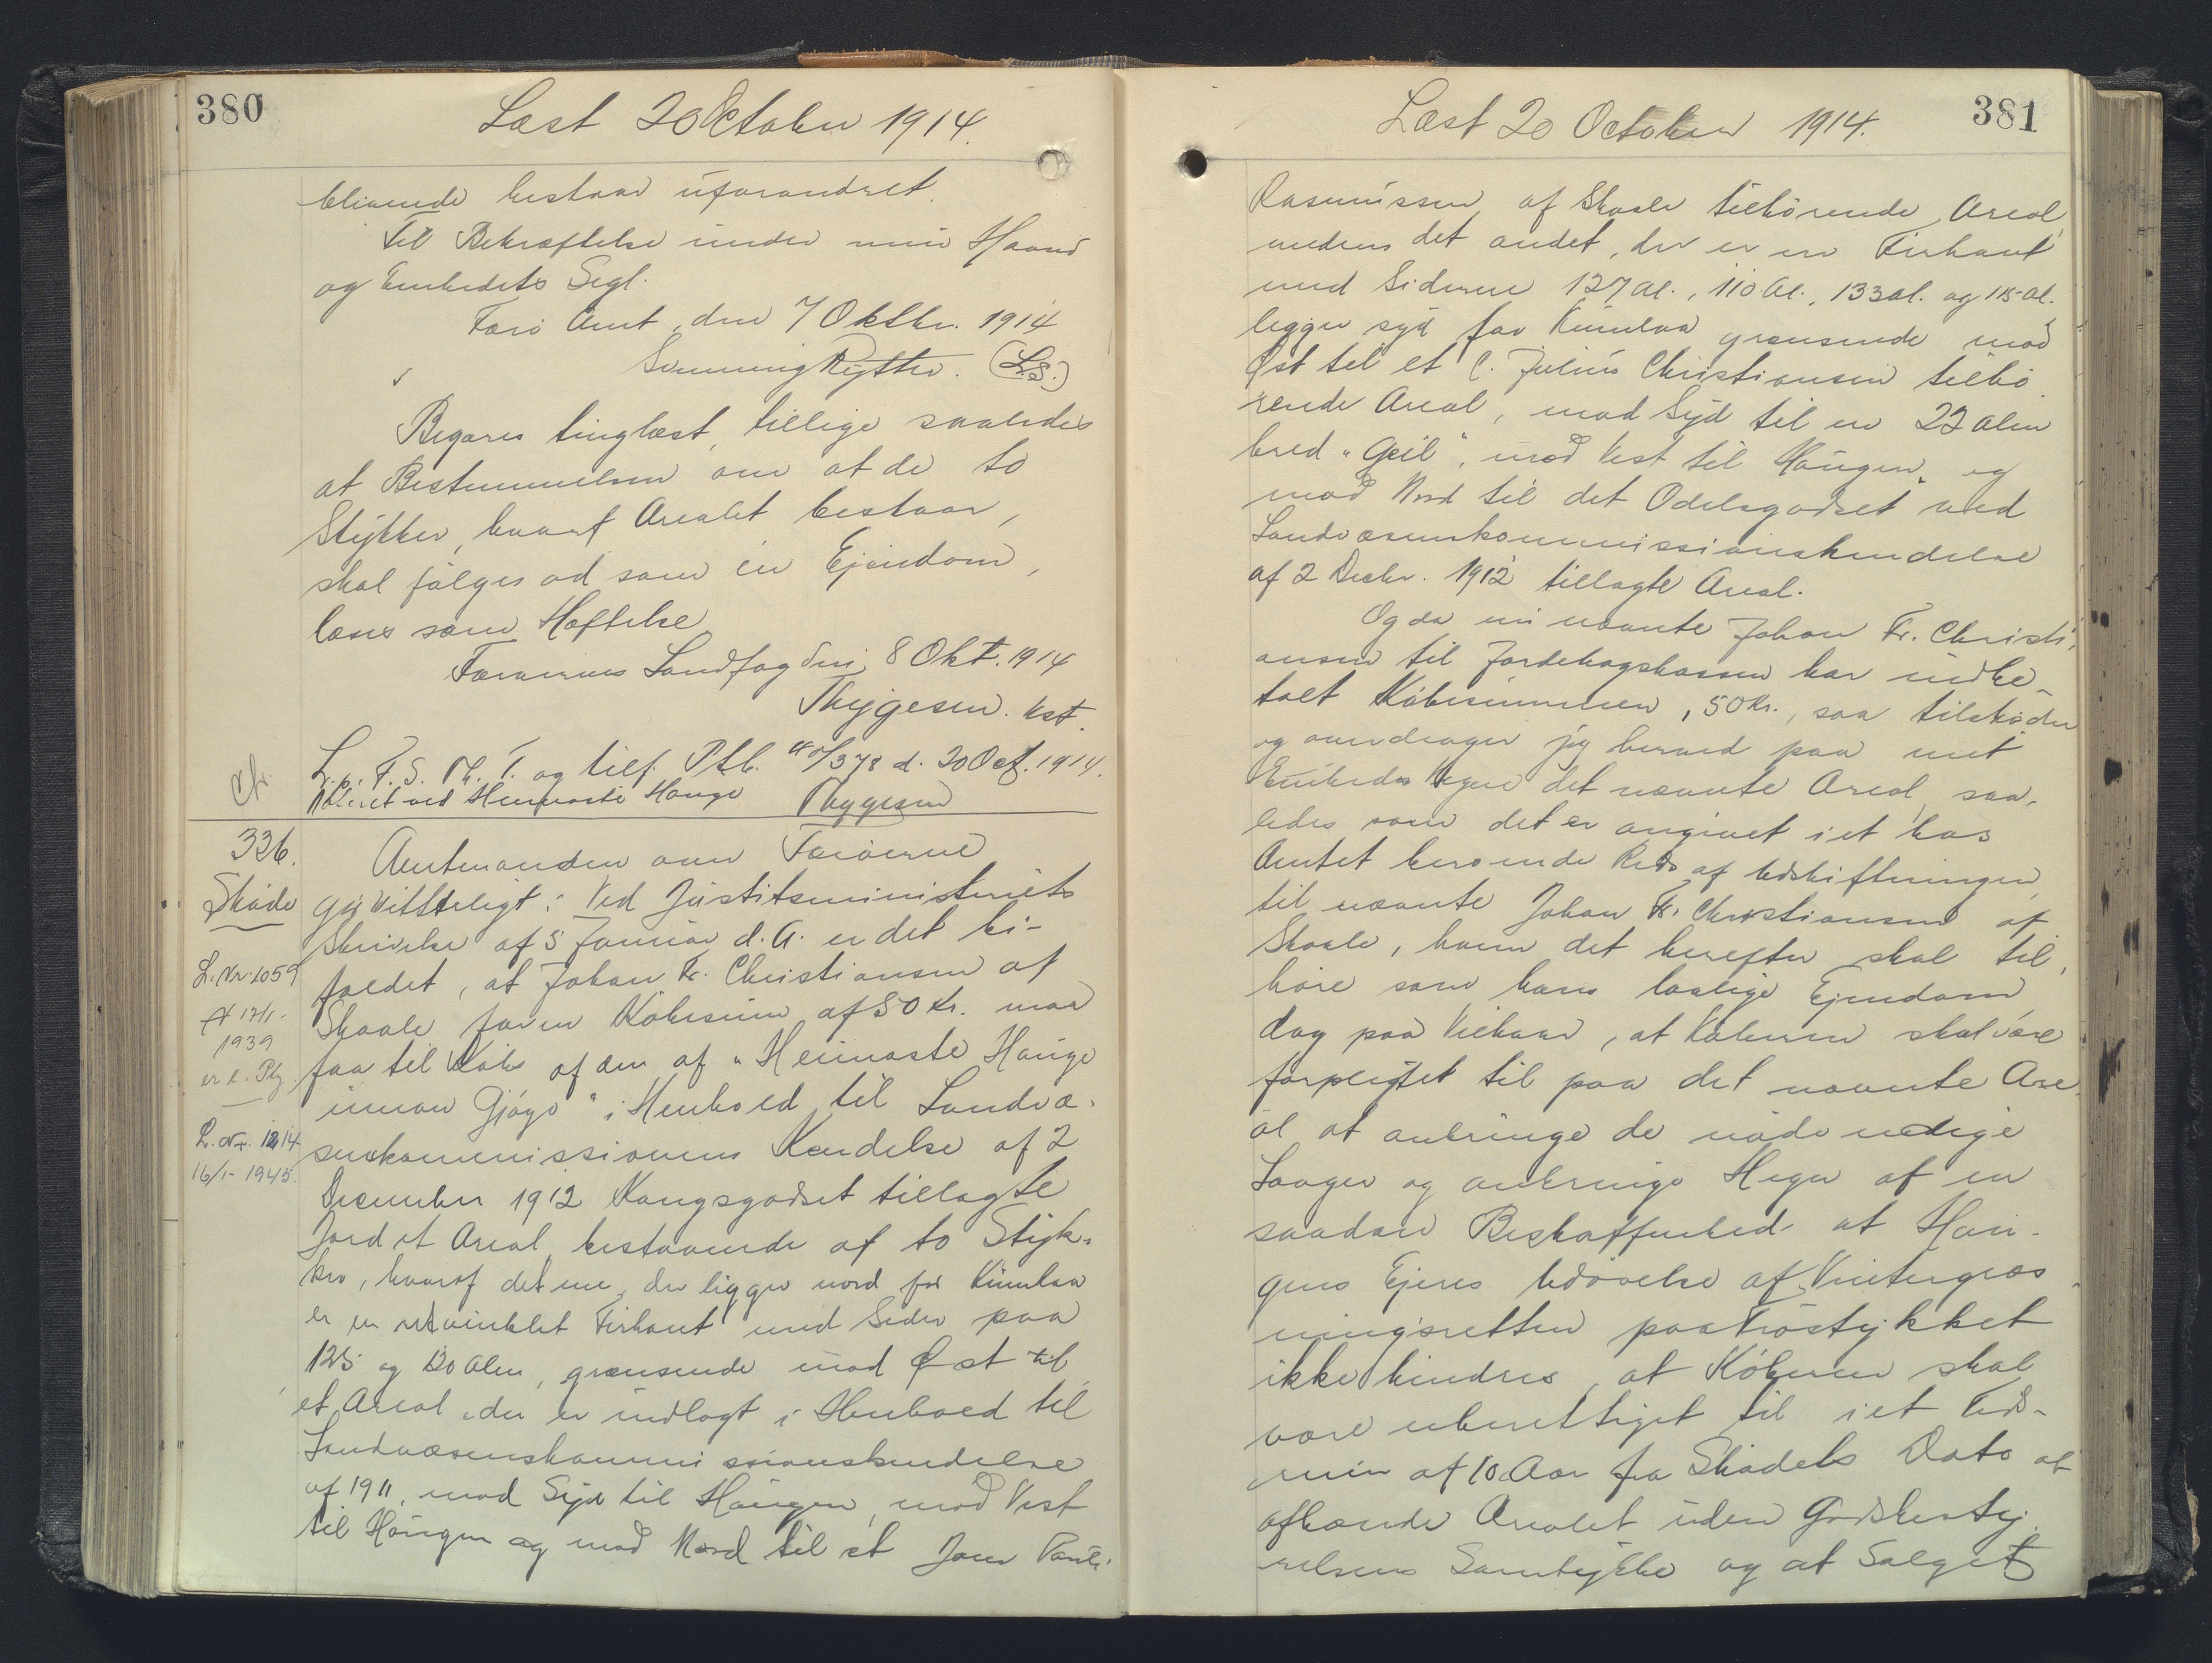 380
Læst 20 October 1914.
blivende bestaar uforandret.
Til Bekræftelse under min Haand
og Embedets Segl.
Færø Amt, den 7 Oktbr. 1914
Svenning Rytter. (L.S.)
Begæres tinglæst, tillige saaledes
at Bestemmelsen om at de to
Stykker, hvoraf Arealet bestaar,
skal følges ad som en Ejendom,
læses som Hæftelse
Færøernes Landfogderi, 8 Okt. 1914
Thygesen. kst.
L. p. F. S. Th. T. og tilf. Ptb. d. 20 Oct. 1914.
Noteret ved Heimaste Hauge Thygesen
336.
Skøde
L. Nr. 1059
17/1-
1939
L. Nr. 1214
16/1- 1945.
Amtmanden over Færøerne
gør vitterligt: Ved Justitsministeriets
Skrivelse af 5 Januar d. A. er det bi-
faldet, at Johan Fr. Christiansen af
Skaale for en Købesum af 50 Kr. maa
faa til Købs af den af "Heimaste Hauge
innan Gjógv" i Henhold til Landvæ-
senskommissionens Kendelse af 2
December 1912 Kongsgodset tillagte
Jord et Areal, bestaaende af to Styk-
ker, hvoraf det ene, der ligger nord for Kumlaa
er en retvinklet Firkant med Sider paa
125 og 120 Alen, grænsende mod Øst til
et Areal, der er indlagt i Henhold til
Landvæsenskommissionskendelse
af 1911, mod Syd til Haugen, mod Vest
til Haugen og mod Nord til et Joen Pauli
381
Læst 20 October 1914.
Rasmussen af Skaale tilhørende Areal,
medens det andet, der er en Firkant
med Siderne 127 Al., 110 Al., 133 Al. og 115 Al.
ligger syd for Kumlaa grænsende mod
Øst til et C. Julius Christiansen tilhø
rende Areal, mod Syd til en 22 Alen
bred "Geil", mod Vest til Haugen, og
mod Nord til det Odelsgodset ved
Landvæsenskommissionskendelse
af 2 Decbr. 1912 tillagte Areal.
Og da nu nævnte Johan Fr. Christi-
ansen til Jordebogskassen har indbe-
talt Købesummen, 50 Kr., saa tilskøder
og overdrager jeg herved paa mit
Embeds Vegne det nævnte Areal, saa-
ledes som det er angivet i et hos
Amtet beroende Rids af Udskiftningen,
til nævnte Johan Fr. Christiansen af
Skaale, hvem det herefter skal til-
høre som hans lovlige Ejendom
dog paa Vilkaar, at Køberen skal være
forpligtet til paa det nævnte Are-
al at anbringe de nødvendige
Laager og anbringe Hegn af en
saadan Beskaffenhed at Hau-
gens Ejeres Udøvelse af Vintergræs
ningsretten paa Trøstykket
ikke hindres, at Køberen skal
være uberettiget til i et Tids-
rum af 10 Aar fra Skødets Dato at
afhænde Arealet uden Godsbesty-
relsens Samtykke og at Salget